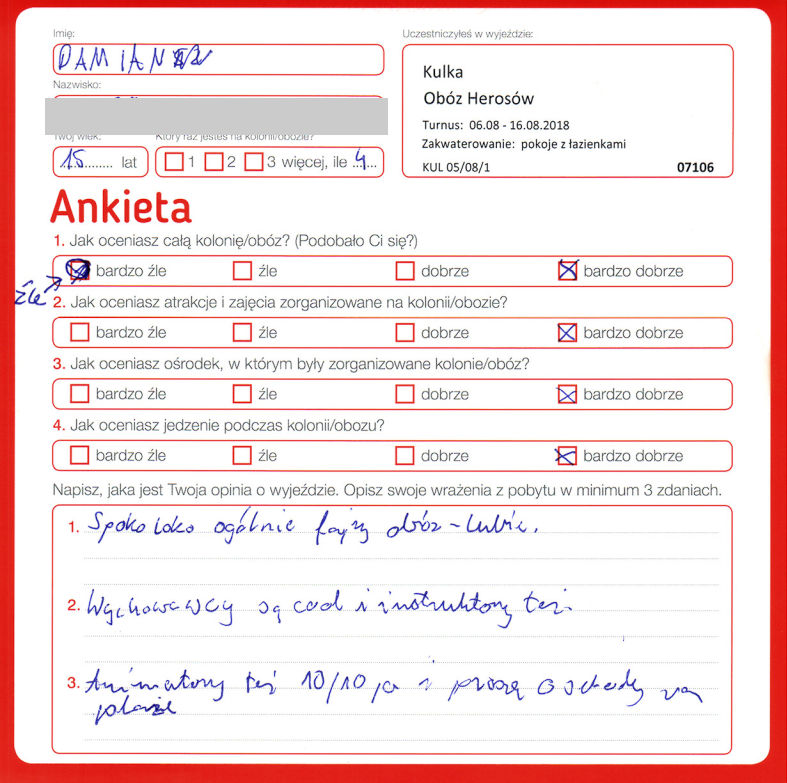 Imię:
DAMIAN
Nazwisko:
Twój wiek:
15 lat
Który raz jesteś na kolonii/obozie?
1 2 3 więcej, ile 4
Uczestniczyłeś w wyjeździe:
Kulka
Obóz Herosów
Turnus: 06.08 - 16.08.2018
Zakwaterowanie: pokoje z łazienkami
KUL 05/08/1 07106
Ankieta
1. Jak oceniasz całą kolonię/obóz? (Podobało Ci się?)
bardzo źle źle dobrze bardzo dobrze
źle
2. Jak oceniasz atrakcje i zajęcia zorganizowane na kolonii/obozie?
bardzo źle źle dobrze bardzo dobrze
3. Jak oceniasz ośrodek, w którym były zorganizowane kolonie/obóz?
bardzo źle źle dobrze bardzo dobrze
4. Jak oceniasz jedzenie podczas kolonii/obozu?
bardzo źle źle dobrze bardzo dobrze
Napisz, jaka jest Twoja opinia o wyjeździe. Opisz swoje wrażenia z pobytu w minimum 3 zdaniach.
1. Spoko loko ogólnie fajny obóz - lubię.
2. Wychowawcy są cool i instruktorzy też.
3. Animatorzy też 10/10 i proszę o schody na
plaże